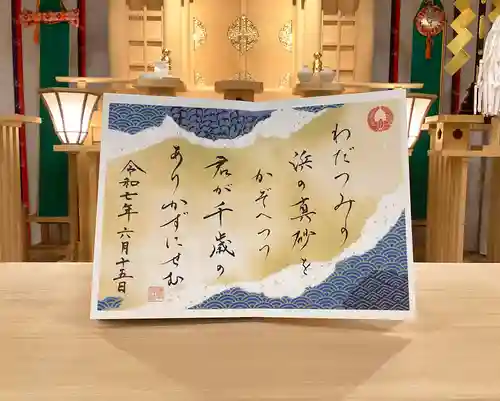 わだつみの
浜の真砂を
かぞへつつ
君が千歳の
ありかずにせむ
令和七年 六月十五日